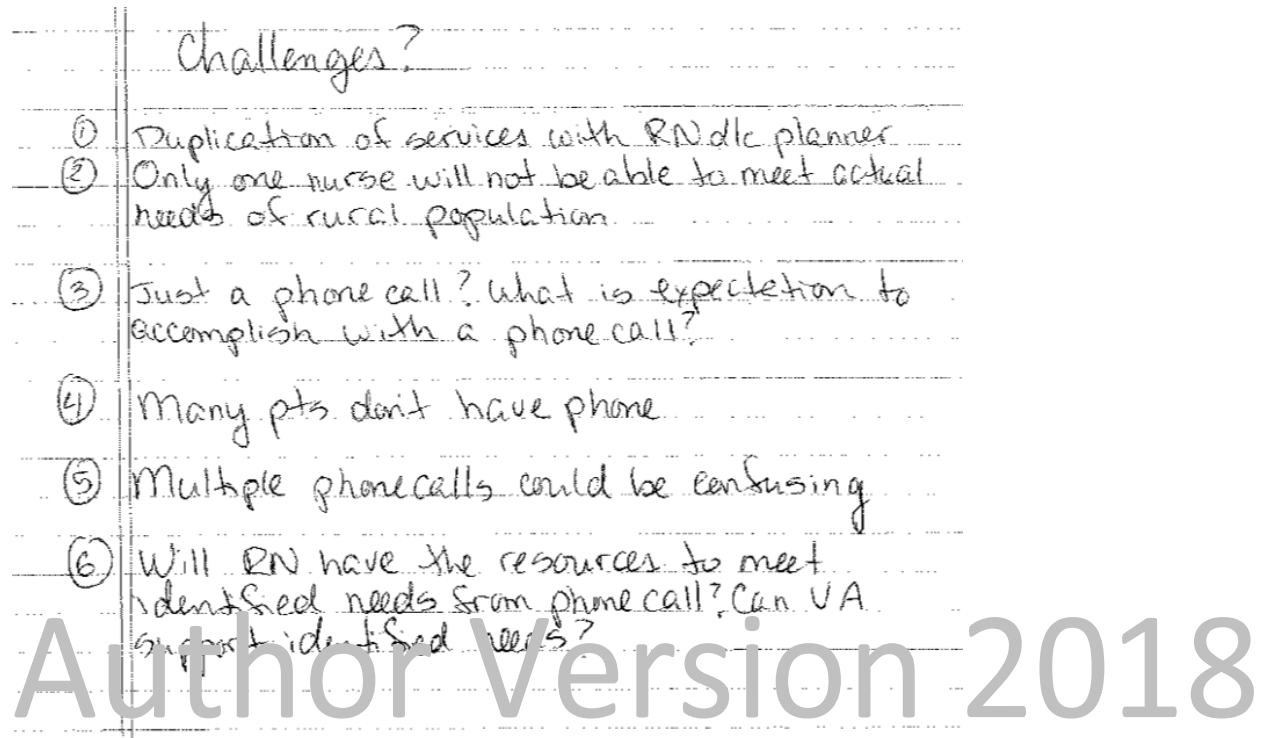 Challenges?
① Duplication of services with RN d/c planner
② Only one nurse will not be able to meet actual
needs of rural population
③ Just a phone call? What is expectetion to
accomplish with a phone call?
④ Many pts don't have phone
⑤ Multiple phonecalls could be confusing
⑥ Will RN have the resources to meet
identified needs from phone call? Can VA
support identified needs?
Author Version 2018